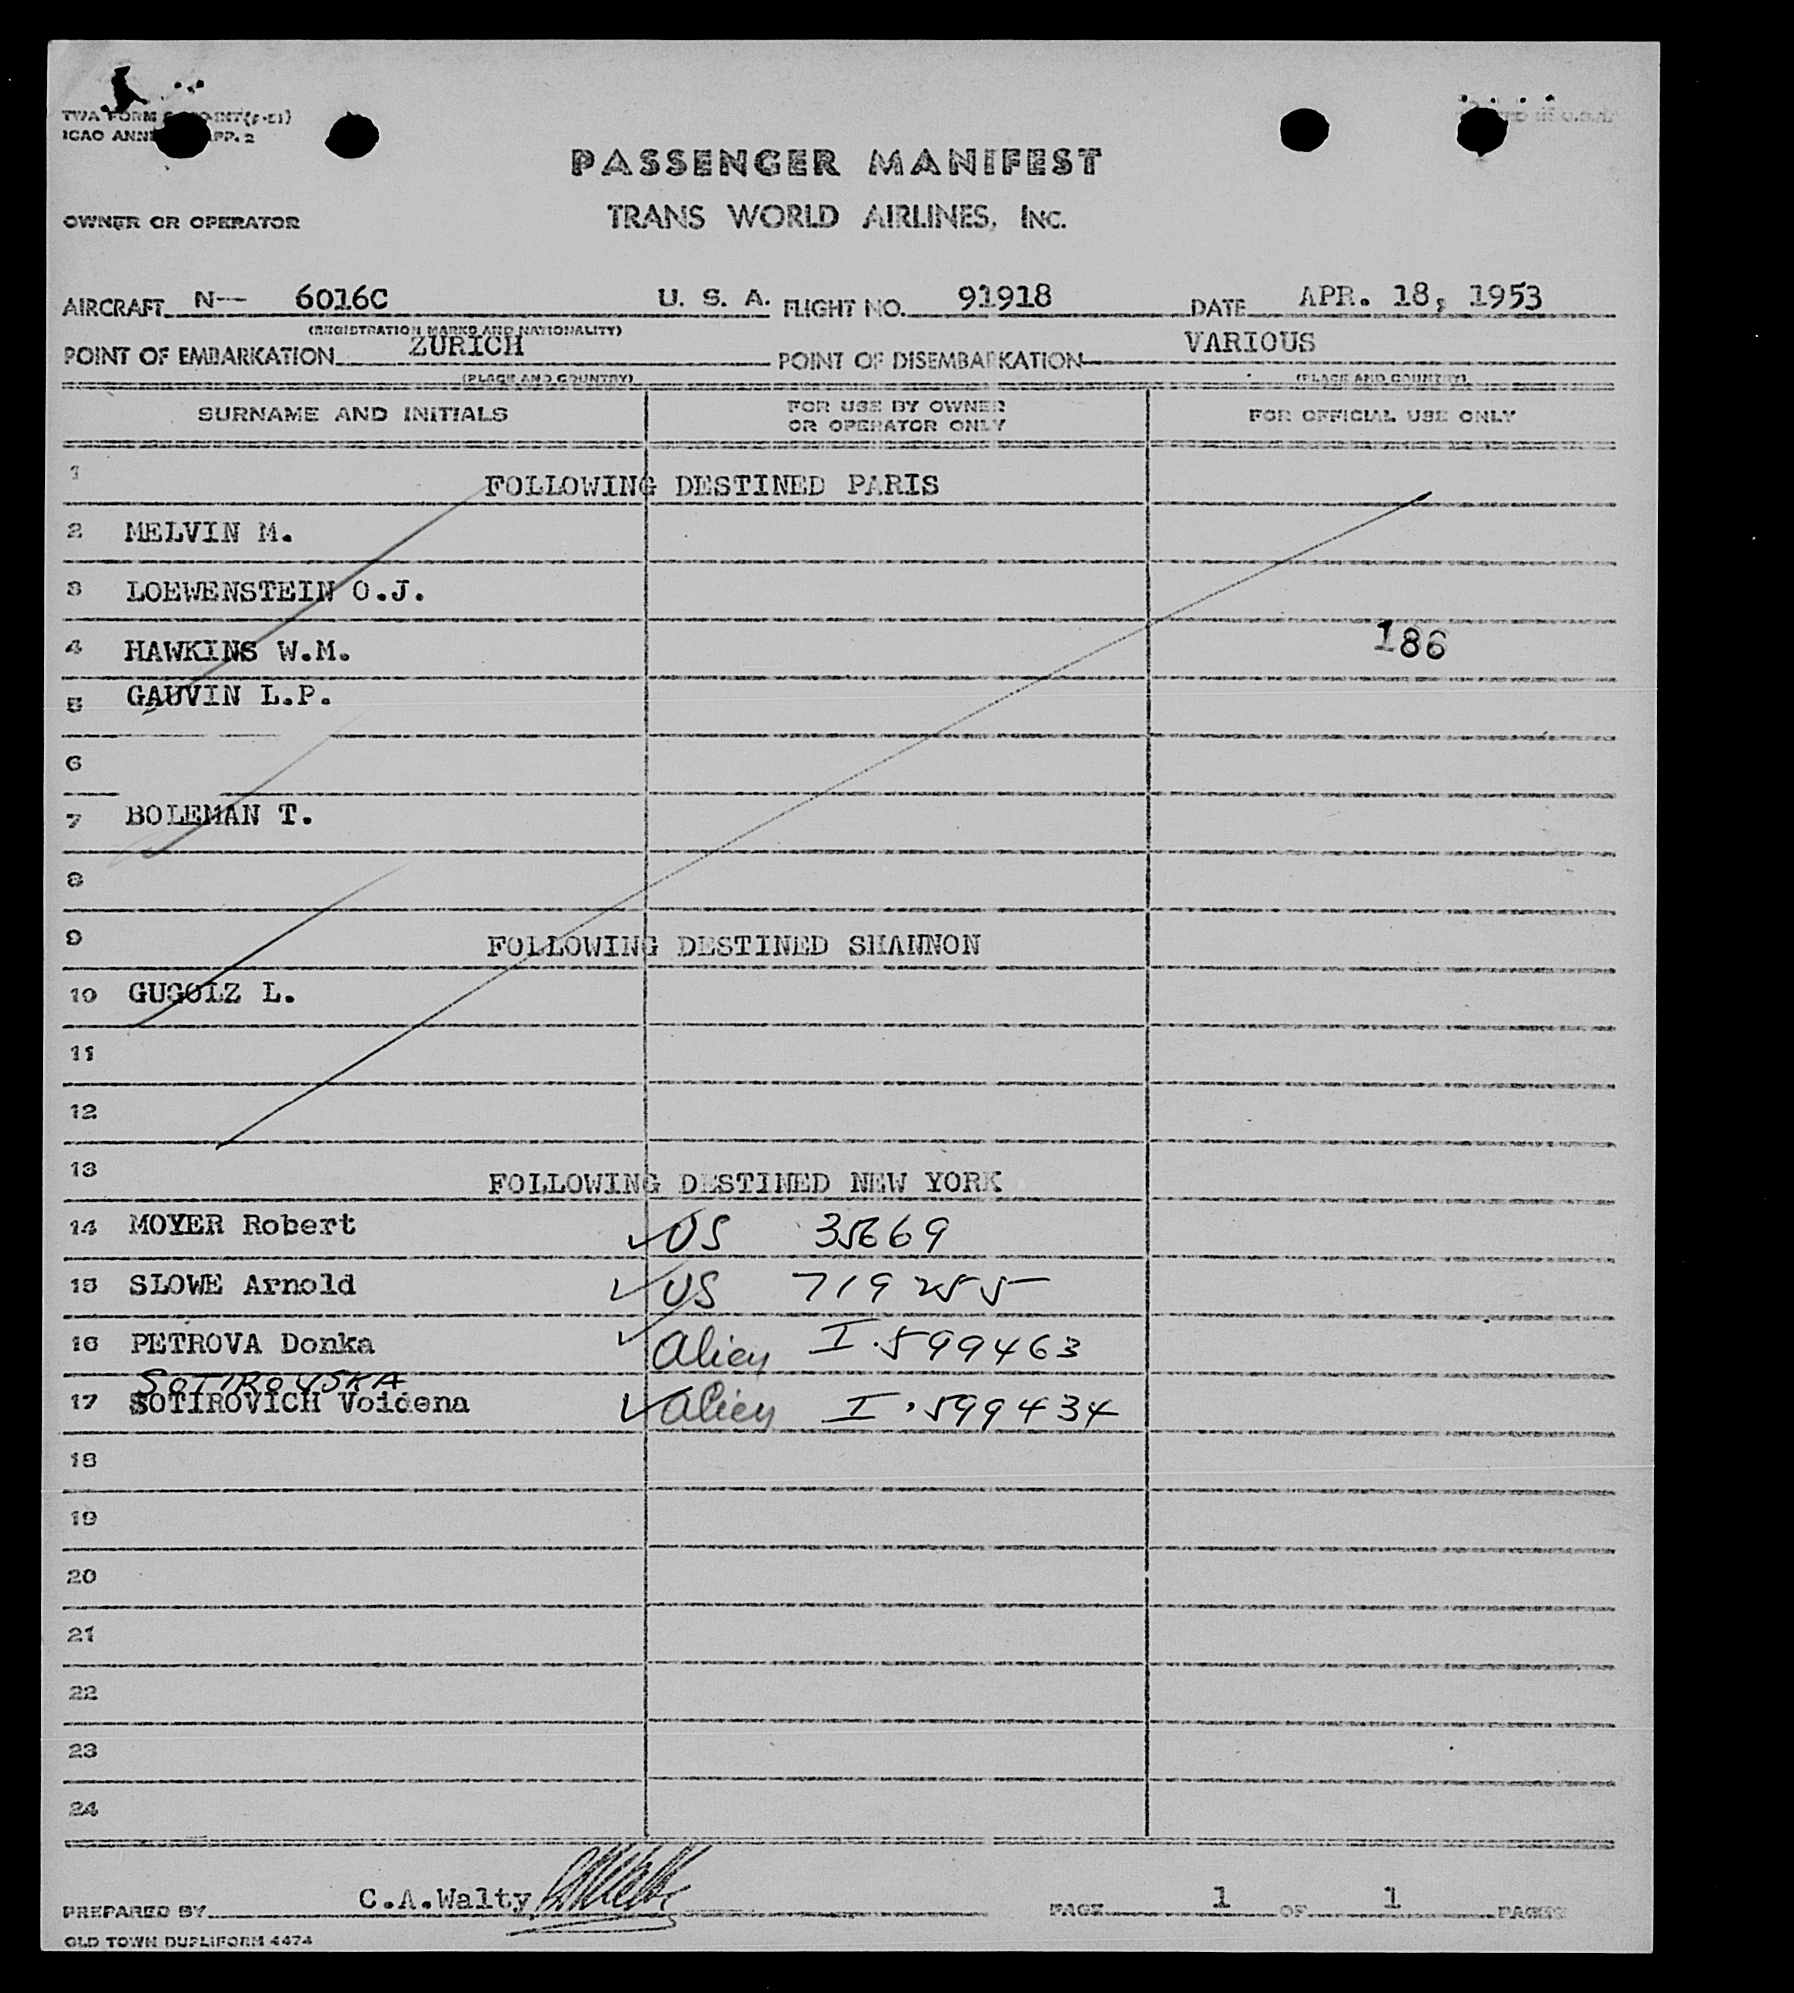 PASSENGER MANIFEST
OWNER OR OPERATOR TRANS WORLD AIRLINES, INC.
AIRCRAFT N-- 6016C U. S. A. FLIGHT NO. 91918 DATE APR. 18, 1953
(REGISTRATION MARKS AND NATIONALITY)
POINT OF EMBARKATION ZURICH POINT OF DISEMBARKATION VARIOUS
(PLACE AND COUNTRY) (PLACE AND COUNTRY)
SURNAME AND INITIALS FOR USE BY OWNER OR OPERATOR ONLY FOR OFFICIAL USE ONLY
1 FOLLOWING DESTINED PARIS
2 MELVIN M.
3 LOEWENSTEIN O.J.
4 HAWKINS W.M. 186
5 GAUVIN L.P.
6
7 BOLEMAN T.
8
9 FOLLOWING DESTINED SHANNON
10 GUGOLZ L.
11
12
13 FOLLOWING DESTINED NEW YORK
14 MOYER Robert ✓ US 35669
15 SLOWE Arnold ✓ US 719255
16 PETROVA Donka ✓ alien I.599463
SOTIROVSKA
17 SOTIROVICH Voidena ✓ alien I.599434
18
19
20
21
22
23
24
PREPARED BY C.A.Walty PAGE 1 OF 1 PAGES
OLD TOWN DUPLIFORM 4474